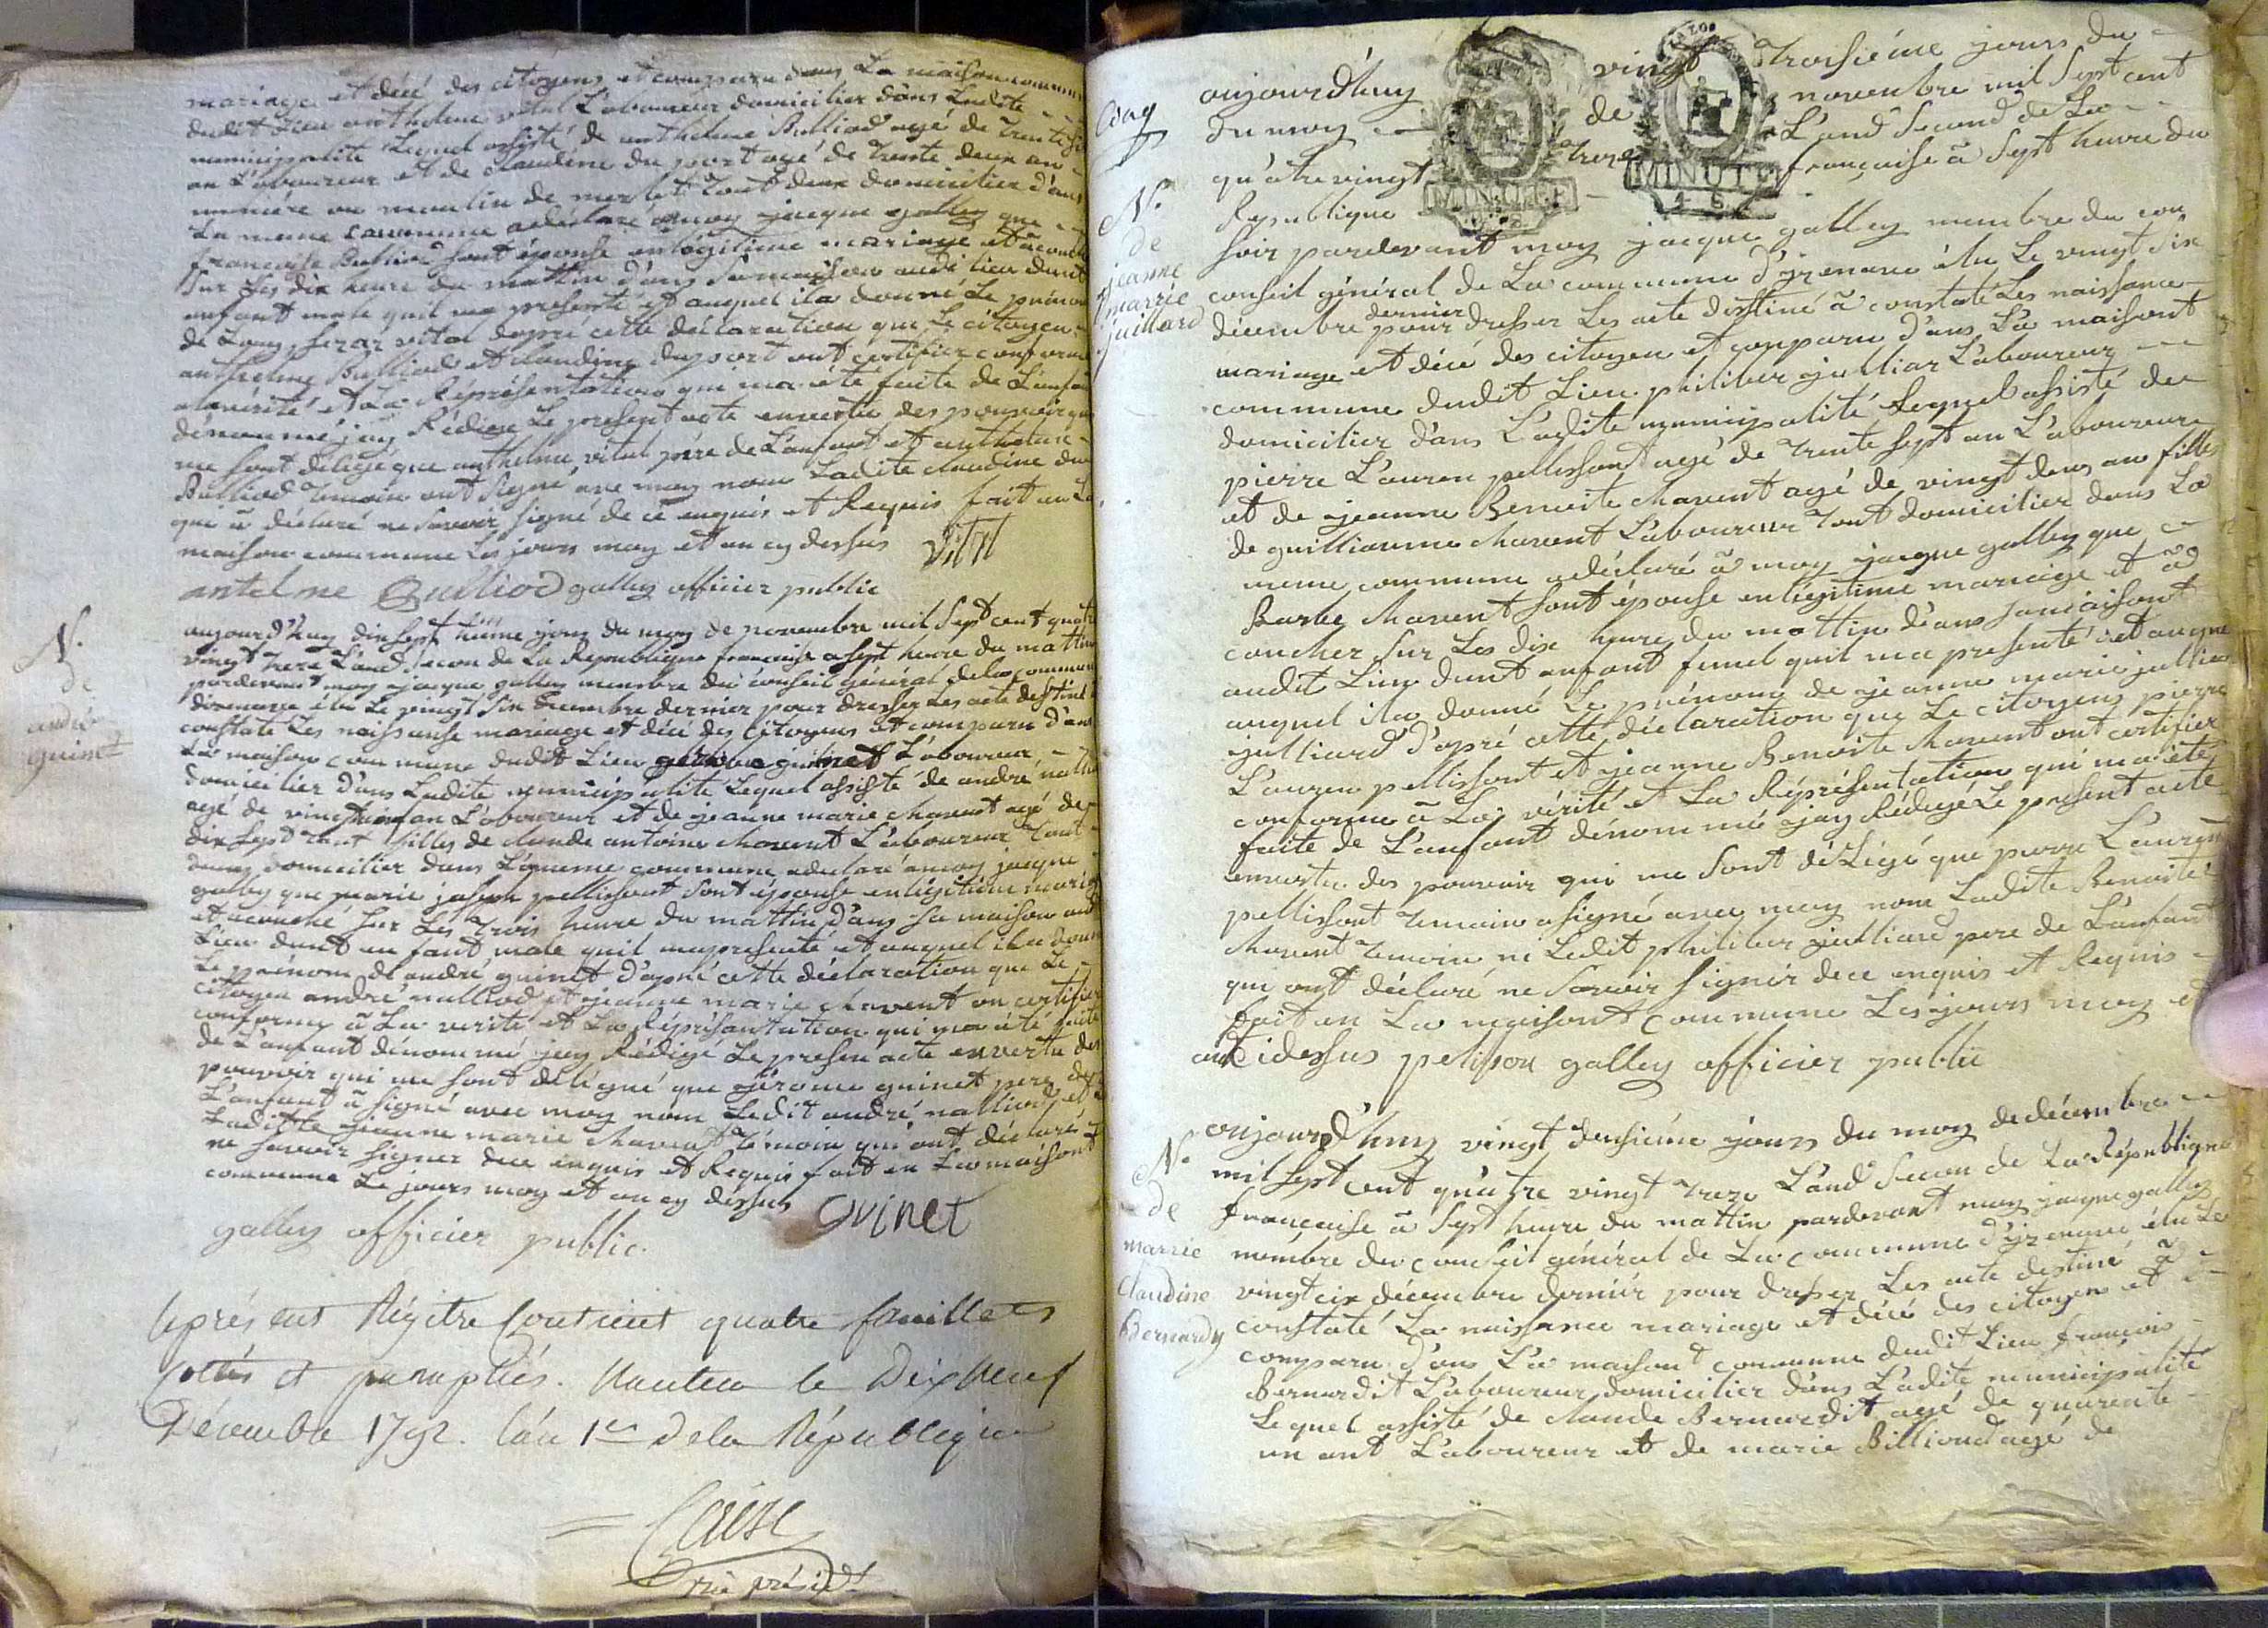 mariage et décé des citoyens et comparu dans La maison commune
dudit Lieu anthelme vital Laboureur domicilier dans Ladite
municipalité Lequel assisté de anthelme Bulliod agé de trente
an L'aboureur et de Claudine du port agé de trente deux an
meniére au moulin de merlet tout deux domicilier d'ans
La meme commune adéclaré amoy jacque galley que
francoise Bulliod sont épouse enlégitime mariage et acouch
sur Les dix heure du mattin d'ans sa maison audi Lieu dunt
enfant male quil ma presenté et auquel ila donné Le prénom
de vital dapré cette déclaration que Le citoyen
anthelme Bulliod et claudine duport ont certifier conforme
alavérité et La Répréséntation qui ma été faite de L'anfant
dénommé jay Rédigé Le present acte envertu des pouvoir qui
me sont deligé que anthelme vital pére de L'anfant et anthelme
Bulliod temoin ont signé ave moy nom Ladite claudine du
qui à déclaré ne savoir signé de cé enquis et Requis fait en La
maison commune Les jours moy et an cy dessus vital
antelme Bulliod galley officier public
N.
de
andré
guinet
aujourd'huy dix sept hieme jour du moy de novembre mil sept cent quatre
vingt treze L'and secon de La Republique francaise a sept heure du mattin
pardevant moy jacque galley membre du conseil général dela commune
dizenave élu Le vingt six décembre dernier pour dresser Les acte destiné
constaté Les naissanse mariage et décé des citoyens et comparu d'ans
La maison commune dudit Lieu gérome guinet L'aboureur
domicilier d'ans Ladite municipalité Lequel assisté de andré nallio
agé de vingt an L'aboureur et de jeanne marie chavent agé de
dix sept ant filles de claude antoine chavent L'aboureur tout
deux domicilier dans La meme commune adeclaré amoy jacque
galley que marie joseph pellissont sont épouse enlégitime mariag
et acouché sur Les trois heure du mattin d'ans sa maison aud
Lieu dunt enfant male quil mapresenté et auquel ila donné
Le prénom de andré guinet d'apré cette déclaration que Le
citoyen andré nalliod et jeanne marie chavent on certifier
conforme à La verité et La Répréséntation qui ma été faite
de L'anfant dénommé jay Rédigé Le presen acte envertu des
pouvoir qui me sont deligué que gérome guinet pere de
L'anfant à signé avec moy nom Ledit andré nalliod et
Laditte jeanne marie chavent témoin qui ont déclaré
ne savoir signer dece enquis et Requis fait en La maisont
commune Le jours moy et an cy dessus Guinet
galley officier public.
Leprésent Régitre Contient quatre feuillets
cottés et paraphés. Nantua le Dixneuf
Décembre 1792. l'an 1er dela République
président
N.
de
jeanne
marrie
juillard
aujourd'huy vingt troisiéme jours du
du moy de novembre mil sept cent
quatre vingt treze L'and second de La
Republique française à sept heure du
soir pardevant moy jacque galley membre du con
conseil général de La commune d'yzenave élu Le vingt six
décembre dernier pour dresser Les acte destiné à constaté Les naissance
mariage et décé des citoyen et comparu d'ans La maisont
commune dudit Lieu philiber julliar L'aboureur
domicilier d'ans L'adite municipalité Lequel assisté de
pierre L'auren pellissont agé de trente sept an L'aboureur
et de jeanne Benoite chavent agé de vingt deux an filles
de guilliaume chavent L'aboureur tout domicilier dans La
meme commune a déclaré à moy jacque galley que
Barbe chavent sont épouse enlégitime mariage et à
coucher sur Les dix heure du mattin d'ans samaisont
audit Lieu dunt enfant femel quil ma presenté et auque
auquel ila donné Le prénom de jeanne marie jullia
julliard d'apré cette déclaration que Le citoyens pierre
L'auren pellissont et jeanne Benoite chavent ont certifier
conforme à La vérité et La Répréséntation qui ma été
faite de L'anfant dénommé jay Rédigé Le present acte
envertu des pouvoir qui me sont déLigé que pierre L'auren
pellissont temoin a signé avec moy nom Ladite Benoite
chavent temoin ni Ledit philiber julliard pere de L'anfant
qui ont déclaré ne savoir signér de ce enquis et Requis
fait en La maisont commune Les jours moy et
ant idessus pelisson galley officier public
N.
de
marrie
Claudine
Bernardy
aujourd'huy vingt deusiéme jours du moy de décembre
mil sept cent quatre vingt treze L'and secon de La République
francaise à sept heure du mattin pardevant moy jacque galley
membre du conseil général de La commune d'yzenave élu Le
vingt cix décembre derniér pour dresser Les acte destiné à
constaté La naissance mariage et décé des citoyens et
comparu d'ans La maisont commune dudit Lieu francois
Bernardit L'aboureur domicilier d'ans L'adite municipalité
Lequel assisté de claude Bernardit agé de quarente
un ant L'aboureur et de marie Billioud agé de